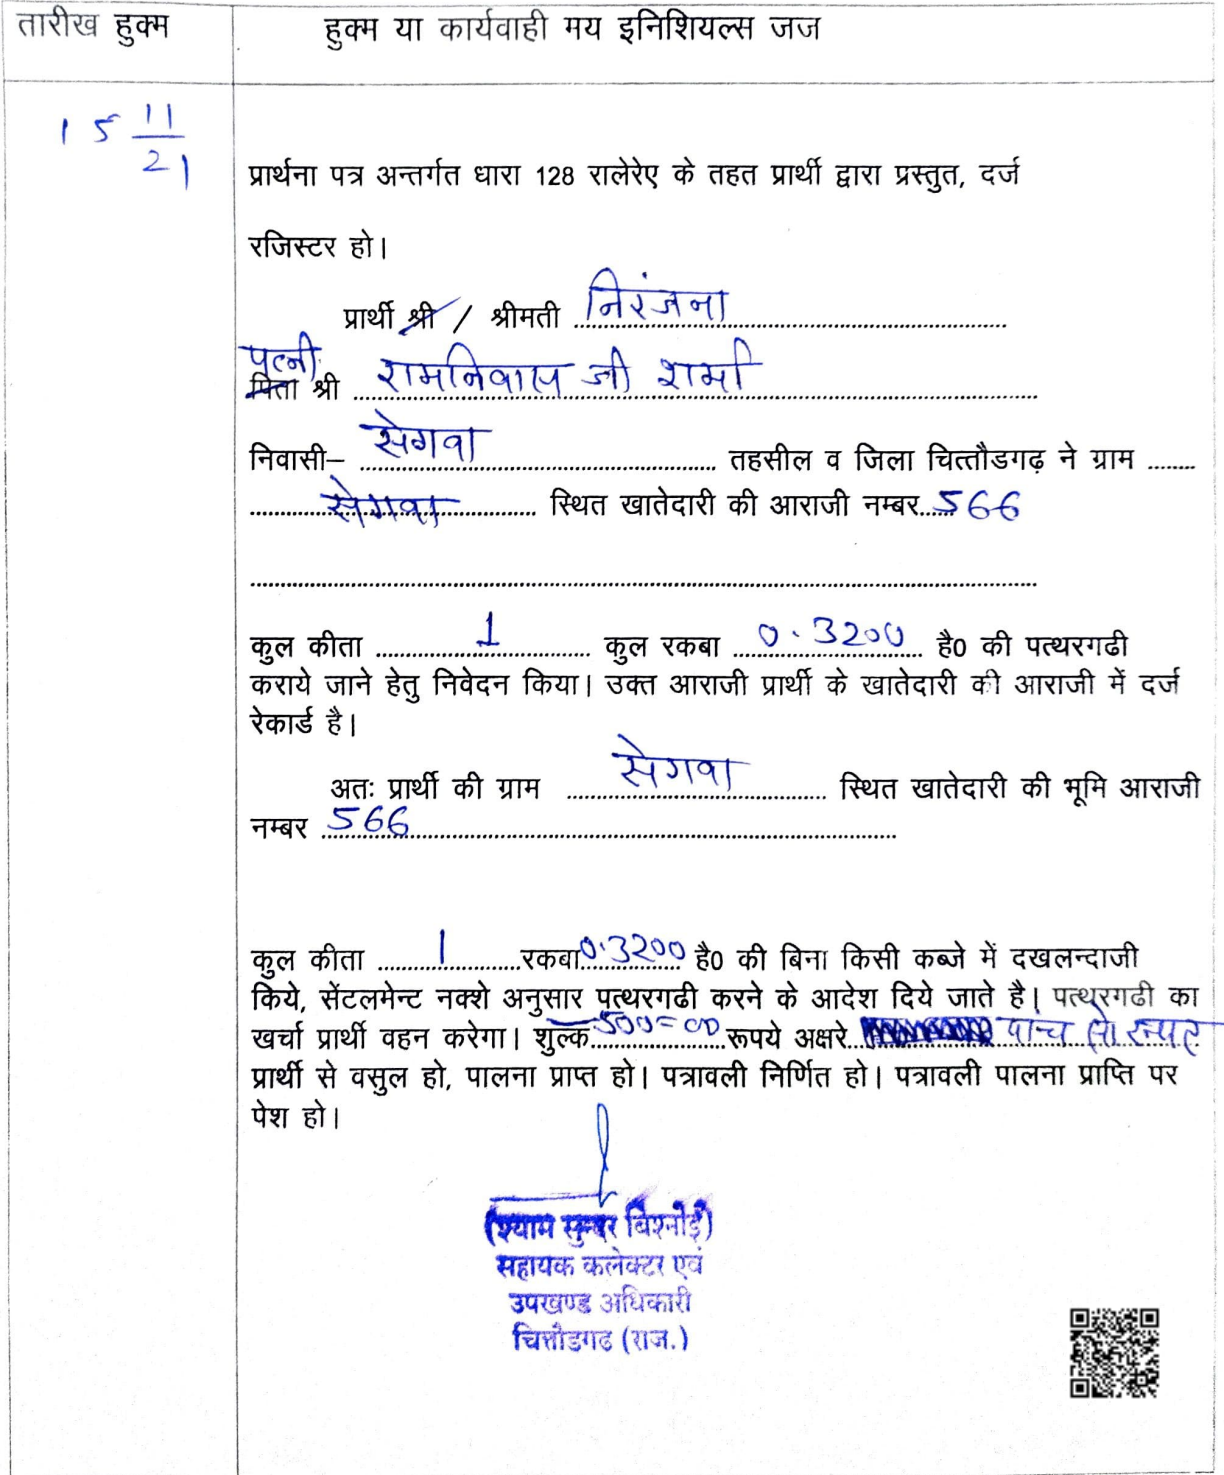 तारीख हुक्म
हुक्म या कार्यवाही मय इनिशियल्स जज
15 11/21
प्रार्थना पत्र अन्तर्गत धारा 128 रालेरेए के तहत प्रार्थी द्वारा प्रस्तुत, दर्ज
रजिस्टर हो।
प्रार्थी श्री / श्रीमती निरंजना
पत्नी
पिता श्री रामनिवास जी शर्मा
निवासी– सेगवा तहसील व जिला चित्तौडगढ़ ने ग्राम ........
सेगवा स्थित खातेदारी की आराजी नम्बर......566
कुल कीता 1 कुल रकबा 0.3200 है0 की पत्थरगढी
कराये जाने हेतु निवेदन किया। उक्त आराजी प्रार्थी के खातेदारी की आराजी में दर्ज
रेकार्ड है।
अतः प्रार्थी की ग्राम सेगवा स्थित खातेदारी की भूमि आराजी
नम्बर 566
कुल कीता 1 रकबा 0.3200 है0 की बिना किसी कब्जे में दखलन्दाजी
किये, सेंटलमेन्ट नक्शे अनुसार पत्थरगढी करने के आदेश दिये जाते है। पत्थरगढी का
खर्चा प्रार्थी वहन करेगा। शुल्क 500=00 रूपये अक्षरे पांच सो
प्रार्थी से वसुल हो, पालना प्राप्त हो। पत्रावली निर्णित हो। पत्रावली पालना प्राप्ति पर
पेश हो।
(श्याम सुन्दर बिश्नोई)
सहायक कलेक्टर एवं
उपखण्ड अधिकारी
चित्तौडगढ (राज.)